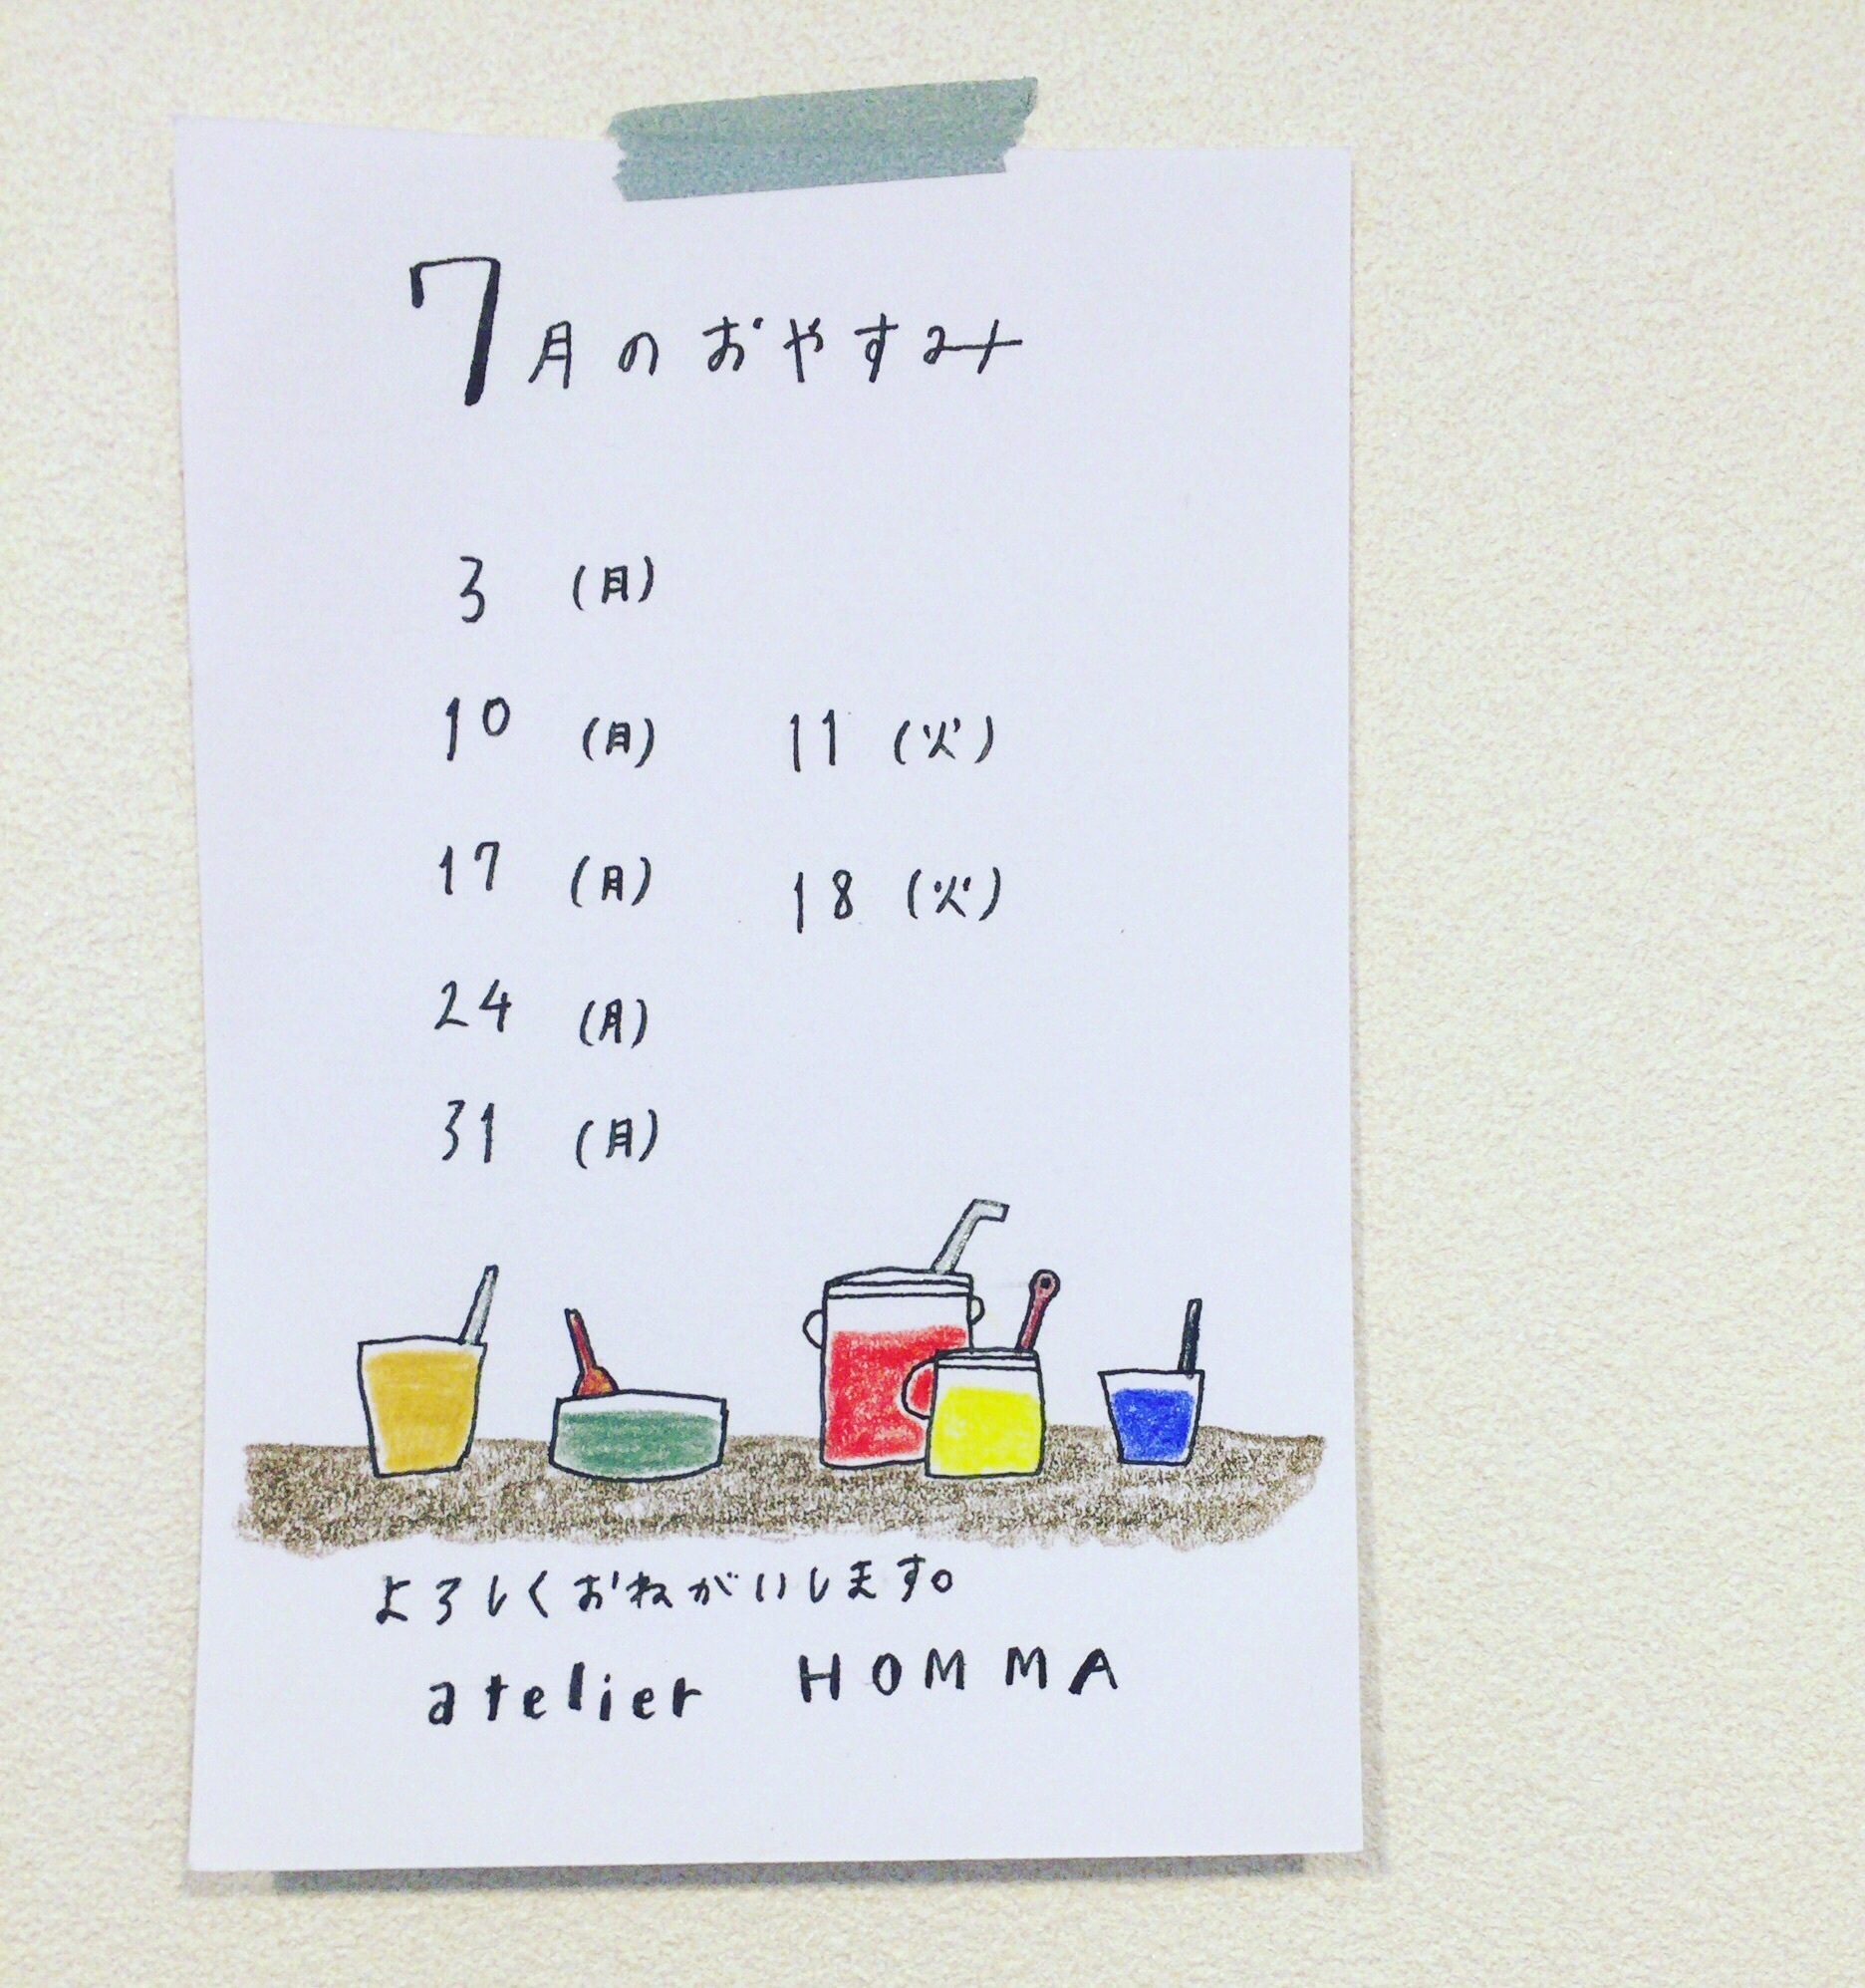 7月のおやすみ
3 (月)
10 (月) 11 (火)
17 (月) 18 (火)
24 (月)
31 (月)
よろしくおねがいします。
atelier HOMMA